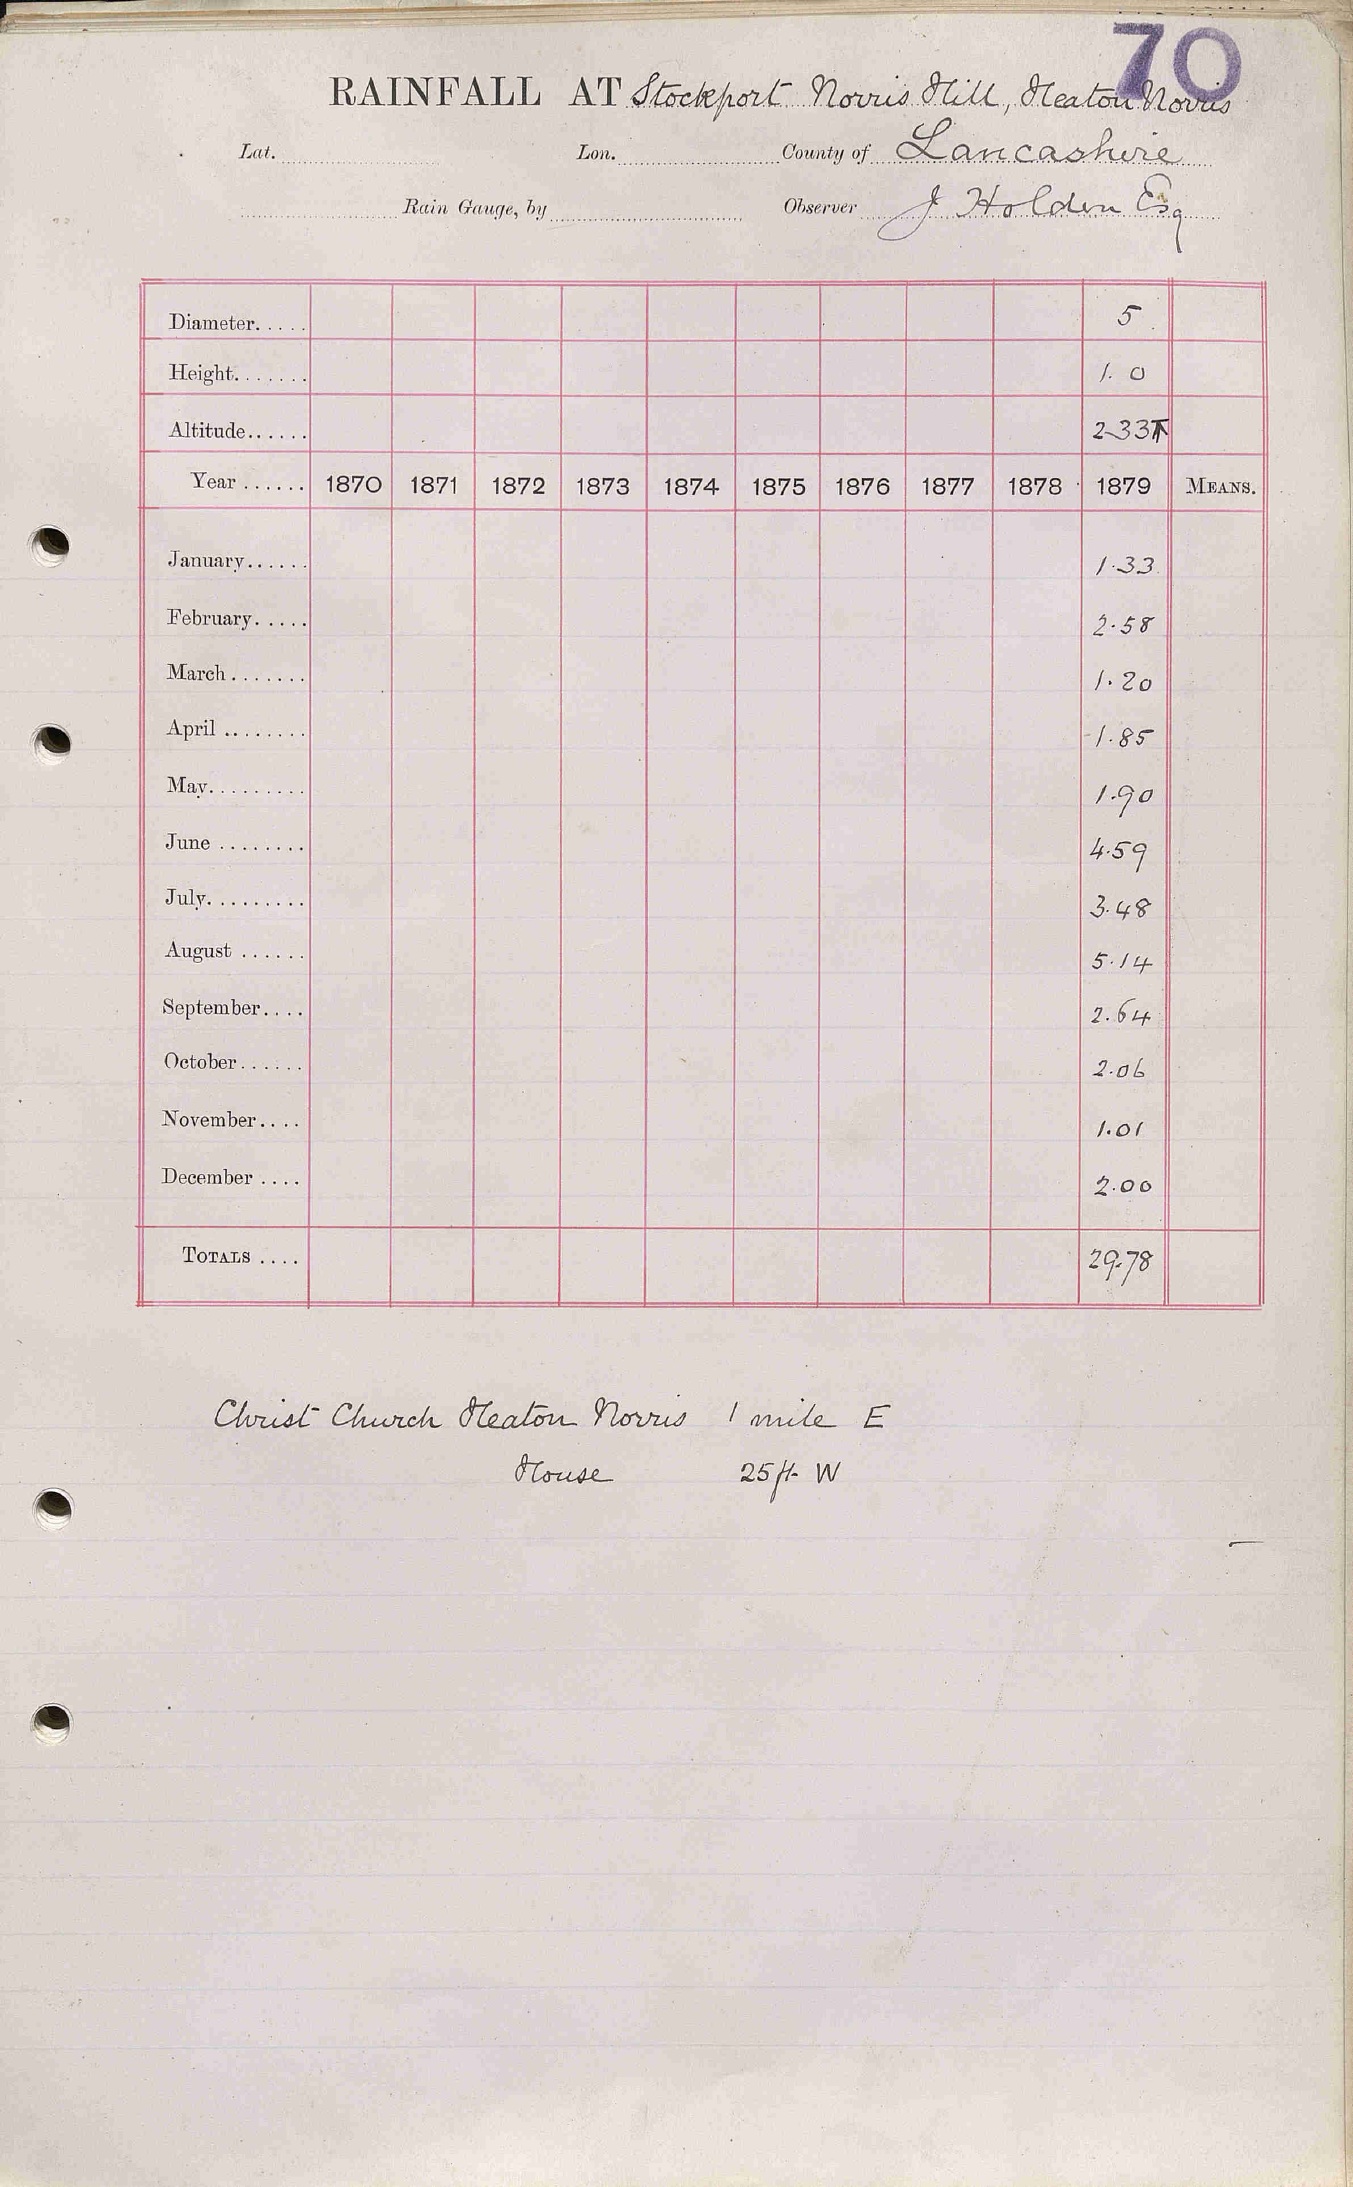 70
RAINFALL AT Stockport Norris Hill, Heaton Norris
Lat. Lon. County of Lancashire
Rain Gauge, by Observer J Holden Esq
Diameter..... 5
Height....... 1.0
Altitude...... 233 T
Year ...... 1870 1871 1872 1873 1874 1875 1876 1877 1878 1879 MEANS.
January...... 1.33
February..... 2.58
March ....... 1.20
April ........ 1.85
May......... 1.90
June ........ 4.59
July......... 3.48
August ...... 5.14
September.... 2.64
October...... 2.06
November.... 1.01
December .... 2.00
TOTALS .... 29.78
Christ Church Heaton Norris 1 mile E
House 25 ft W